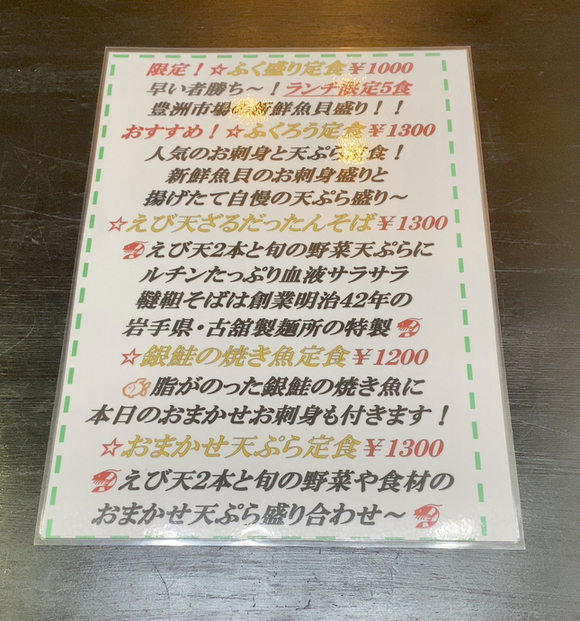 限定！☆ふく盛り定食￥1000
早い者勝ち～！ランチ限定5食
豊洲市場の新鮮魚貝盛り！！
おすすめ！☆ふくろう定食￥1300
人気のお刺身と天ぷら定食！
新鮮魚貝のお刺身盛りと
揚げたて自慢の天ぷら盛り～
☆えび天ざるだったんそば￥1300
えび天2本と旬の野菜天ぷらに
ルチンたっぷり血液サラサラ
韃靼そばは創業明治42年の
岩手県・古舘製麺所の特製
☆銀鮭の焼き魚定食￥1200
脂がのった銀鮭の焼き魚に
本日のおまかせお刺身も付きます！
☆おまかせ天ぷら定食￥1300
えび天2本と旬の野菜や食材の
おまかせ天ぷら盛り合わせ～